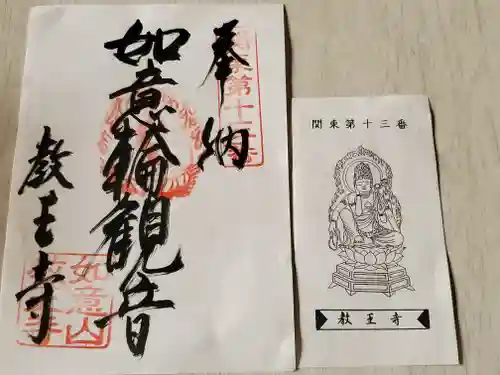 奉納
如意輪観音
教王寺
関東第十三番
如意山
教王寺
関東第十三番
教王寺